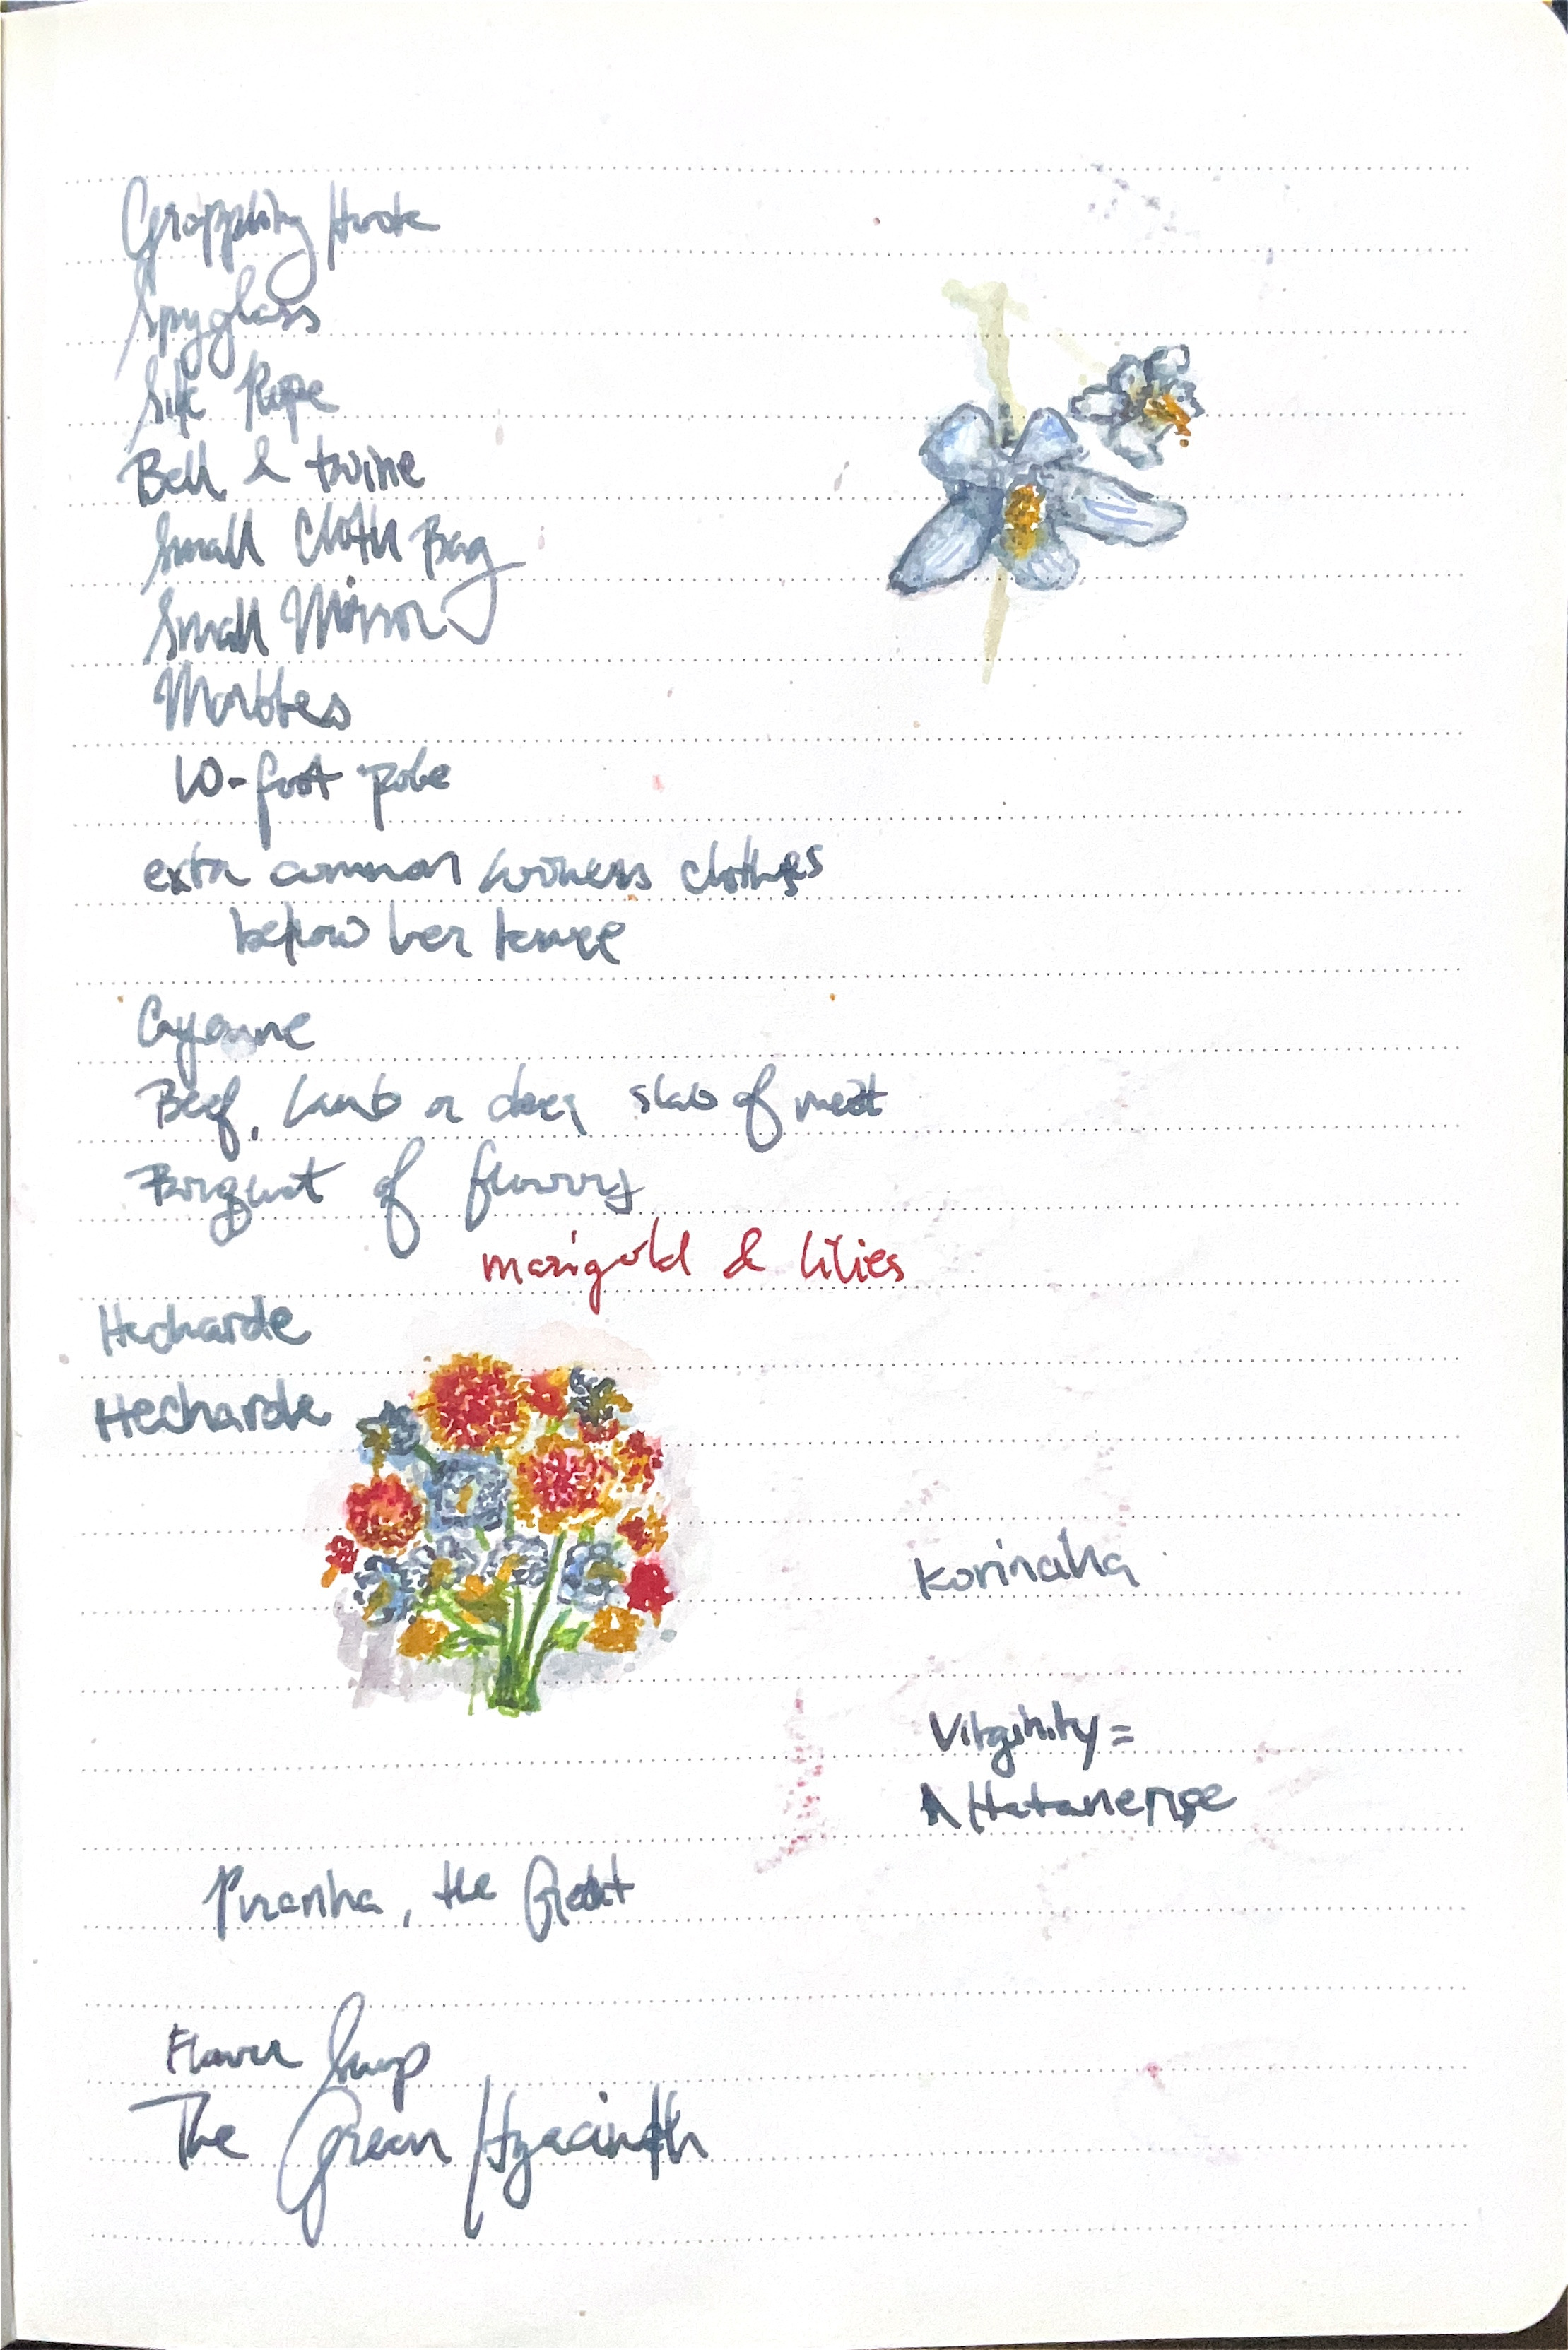 Grappling Hook
Spyglass
Silk Rope
Bell & twine
Small Cloth Bag
Small Mirror
Marbles
10-foot pole
extra common workers clothes
below her
Cayenne
Beef, lamb or deer, slab of meat
Bouquet of flowers
marigold & lilies
Hecharde
Hecharde
Korinaha
Virginity =
Piranha, the Great
Flower Shop
The Green Hyacinth